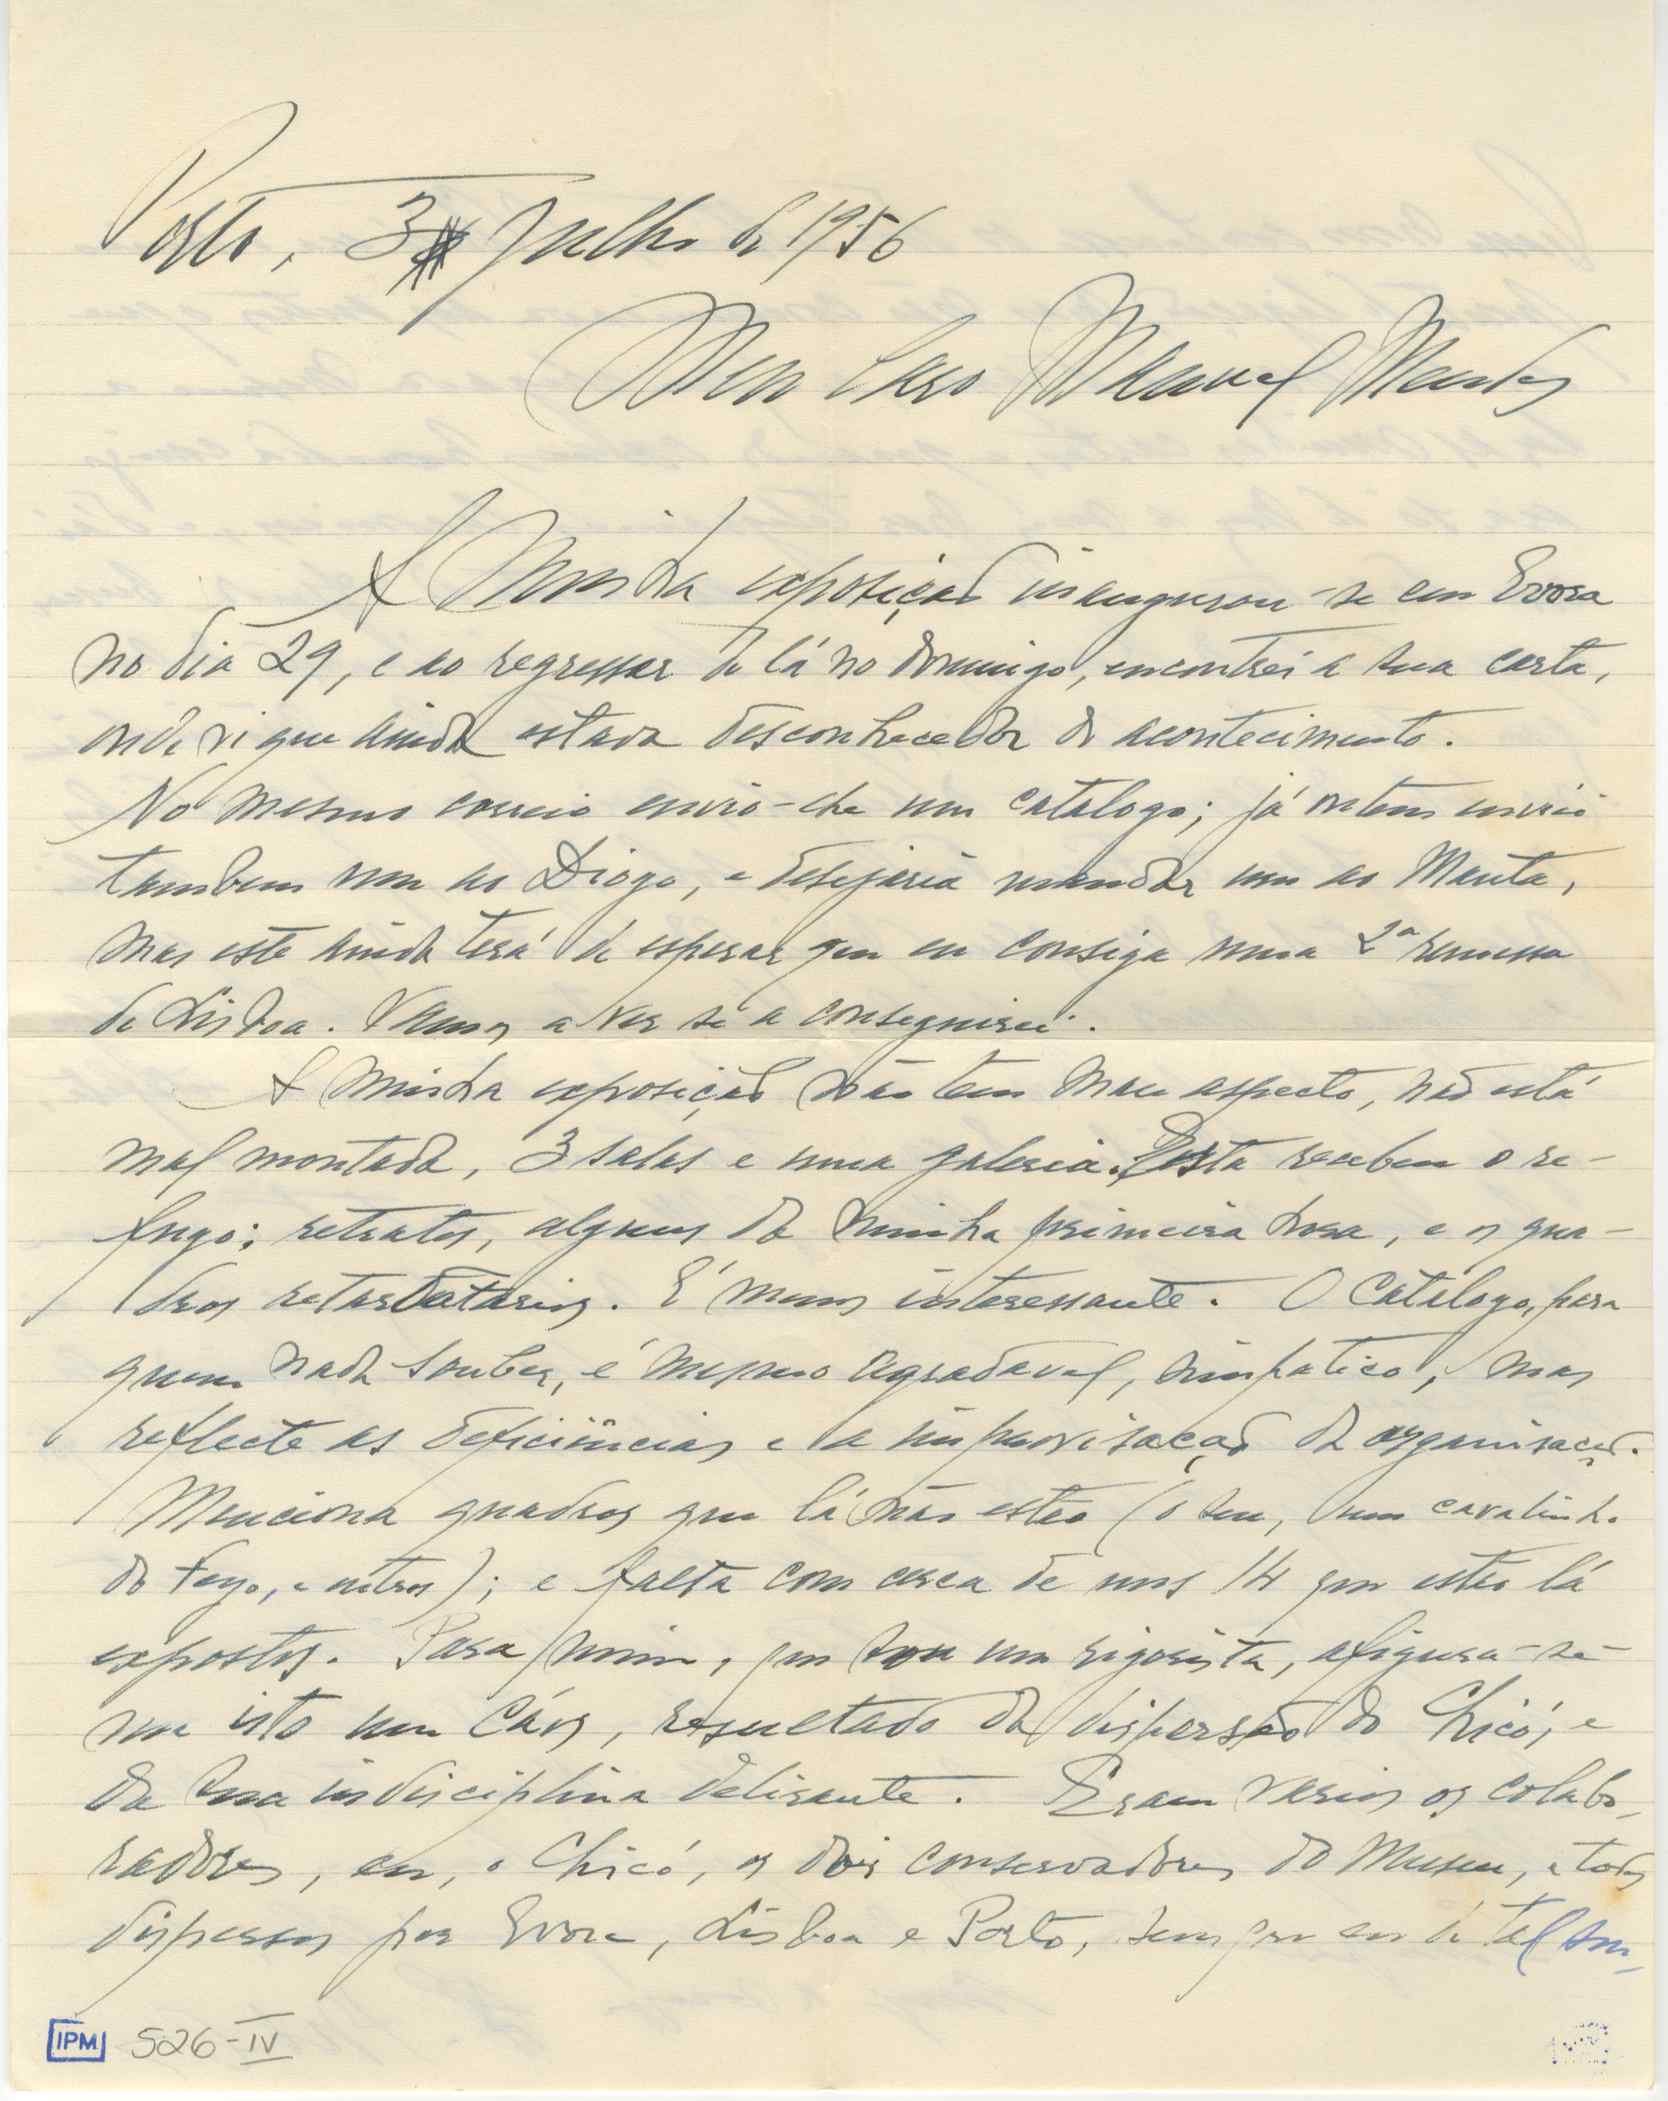 Porto, 3 Julho de 1956
Meu caro Manuel Mendes
A minha exposição inaugurou-se em Evora
no dia 29, e ao regressar de lá no domingo, encontrei a sua carta,
onde vi que ainda estava desconhecedor do acontecimento.
No mesmo correio envio-lhe um catalogo; já ontem enviei
tambem um ao Diogo, e desejaria mandar um ao Manta,
mas este ainda terá de esperar que eu consiga uma 2ª remessa
de Lisboa. Vamos a ver se a conseguirei.
A minha exposição não tem mau aspecto, não está
mal montada, 3 salas e uma galeria. Esta recebeu o re-
fugo: retratos, alguns da minha primeira hora, e os qua-
dros retardatarios. É menos interessante. O Catálogo, para
quem nada souber, é mesmo agradavel, simpatico, mas
reflecte as deficiências e a improvisação da organisação.
Menciona quadros que lá não estão (o seu, um cavalinho
de Fogo, e outros); e falta com cerca de uns 14 que estão lá
expostos. Para mim, que sou um rigorista, afigura-se-
me isto um cáos, resultado da dispersão do Chicó, e
da sua indisciplina delirante. Eram varios os colabo-
radores, eu, o Chicó, os dois conservadores do Museu, e todos
dispersos por Evora, Lisboa e Porto, sem que eu de tal sou-
IPM 526-IV